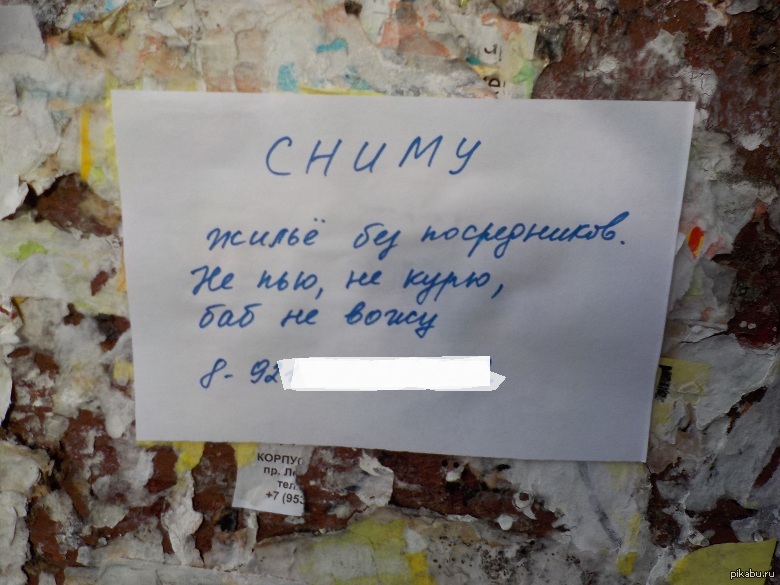 СНИМУ
жильё без посредников.
Не пью, не курю,
баб не вожу
8-92
КОРПУС
пр. Ле
тел
+7 (953
pikabu.ru